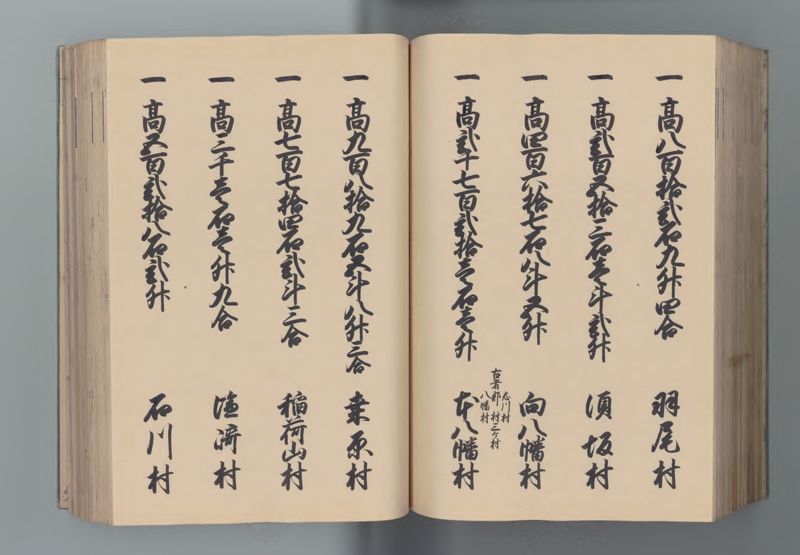 一 高八百拾弐石九升四合 羽尾村
一 高弐百五拾三石壱斗弐升 須坂村
一 高四百六拾七石八斗五升 向八幡村
一 高弐千七百弐拾壱石壱升 本八幡村
古者 志川村 郡村 八幡村 三ケ村
一 高九百八拾九石五斗八升三合 桒原村
一 高七百七拾四石弐斗三合 稲荷山村
一 高二千壱石壱升九合 塩崎村
一 高五百弐拾八石弐升 石川村